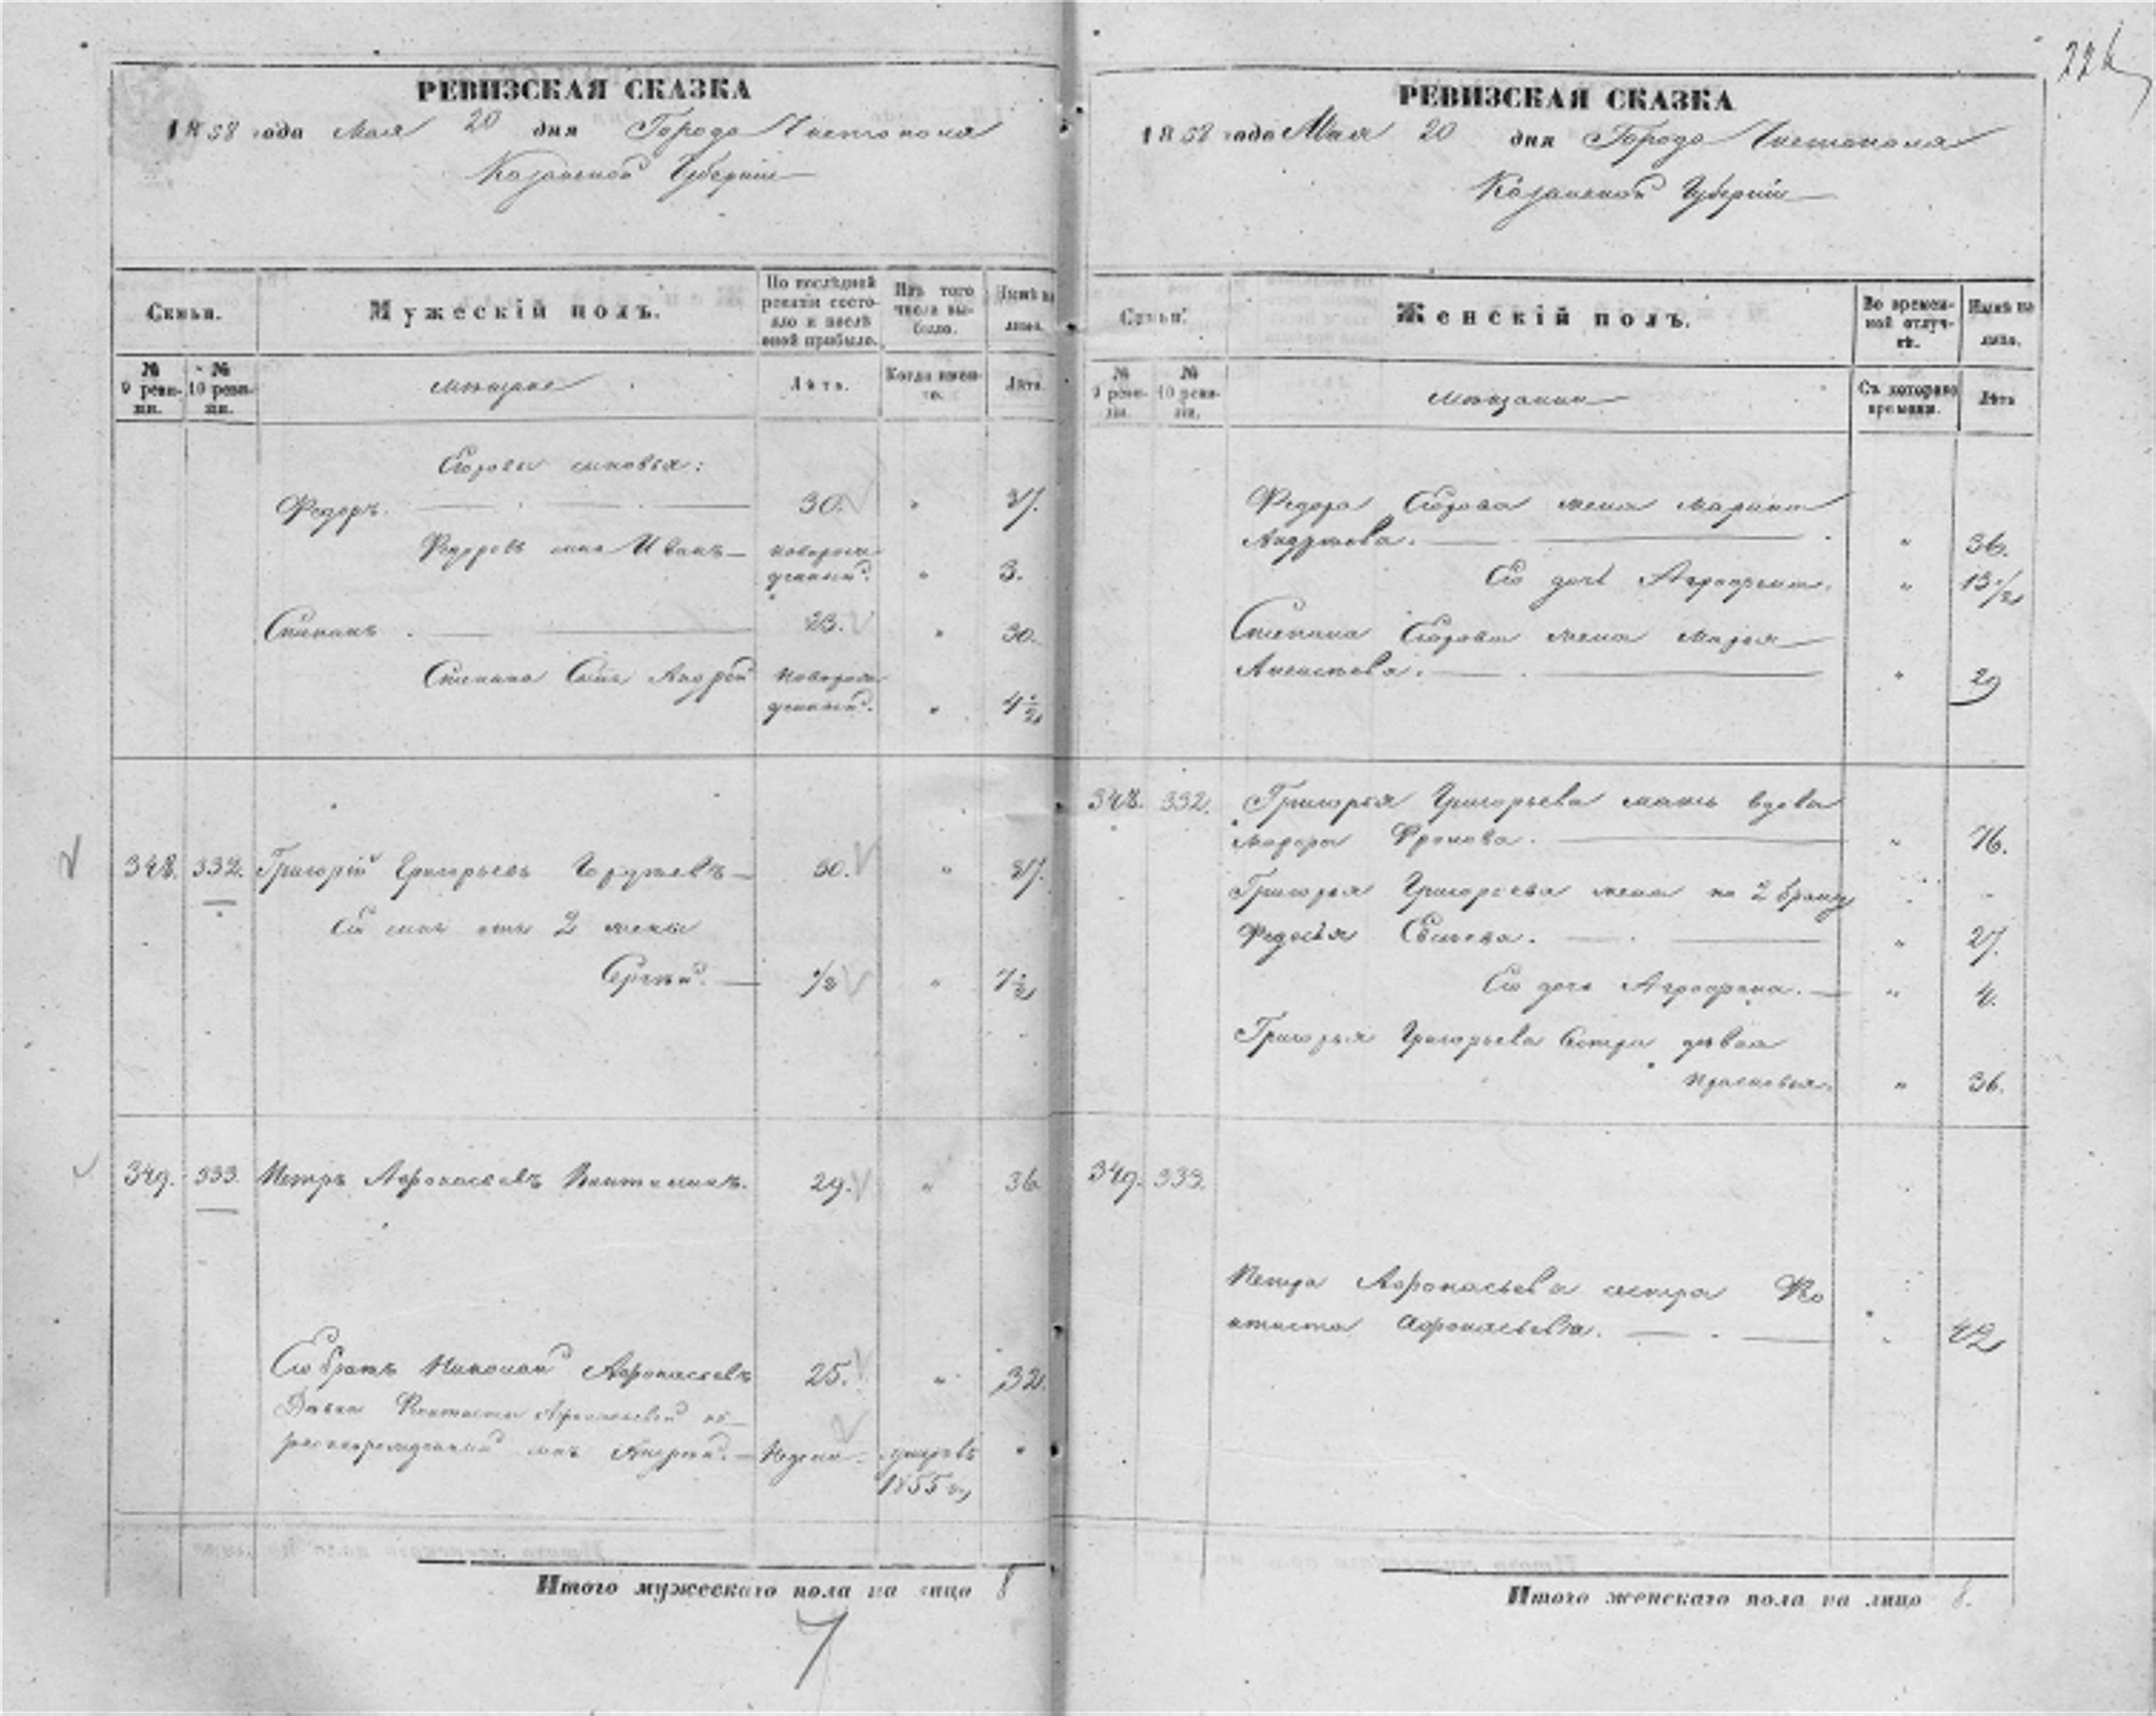 РЕВИЗСКАЯ СКАЗКА
1858 года Мая 20 дня Города Чистополя
Казанской Губернiи
Семьи.
Мужескій полъ.
По послѣдней ревизіи состояло и послѣ оной прибыло.
Изъ того числа выбыло.
Нынѣ на лицо.
№ 9 ревизіи.
№ 10 ревизіи.
мѣщане
Лѣта.
Когда именно.
Лѣта.
сыновья:
Федоръ. 30. " 37.
Федоровъ сынъ Иванъ новорожденный. " 3.
Степанъ. 23. " 30.
Степана Сынъ Андрей новорожденный. " 4 1/2
348. 332. Григорій Григорьевъ 30. " 37.
Его сынъ отъ 2 жены
Сергѣй. 1/2 " 7 1/2
349. 333. Петръ Афонасьевъ 29. " 36
Его братъ Николай Афонасьевъ 25. " 32.
Афонасьевой
сынъ Андрей. Недели умеръ въ "
1855 г.
Итого мужескаго пола на лицо 8
7
224
РЕВИЗСКАЯ СКАЗКА
1858 года Мая 20 дня Города Чистополя
Казанской Губерніи
Семьи.
Женскій полъ.
Во временной отлучкѣ.
Нынѣ на лицо.
№ 9 ревизіи.
№ 10 ревизіи.
мѣщанки
Съ котораго времени.
Лѣта
Федора жена Марина
Андреева. " 36.
Его дочь Агрофена. " 13 1/2
Степана жена Марья
" 29
348. 332. Григорья Григорьева мать вдова
" 76.
Григорья Григорьева жена по 2 браку
Федосья " 27.
Его дочь Агрофена. " 4.
Григорья Григорьева Сестра дѣвка
Прасковья. " 36.
349. 333.
Петра Афонасьева сестра Фео
ктиста Афонасьева. " 42
Итого женскаго пола на лицо 8.